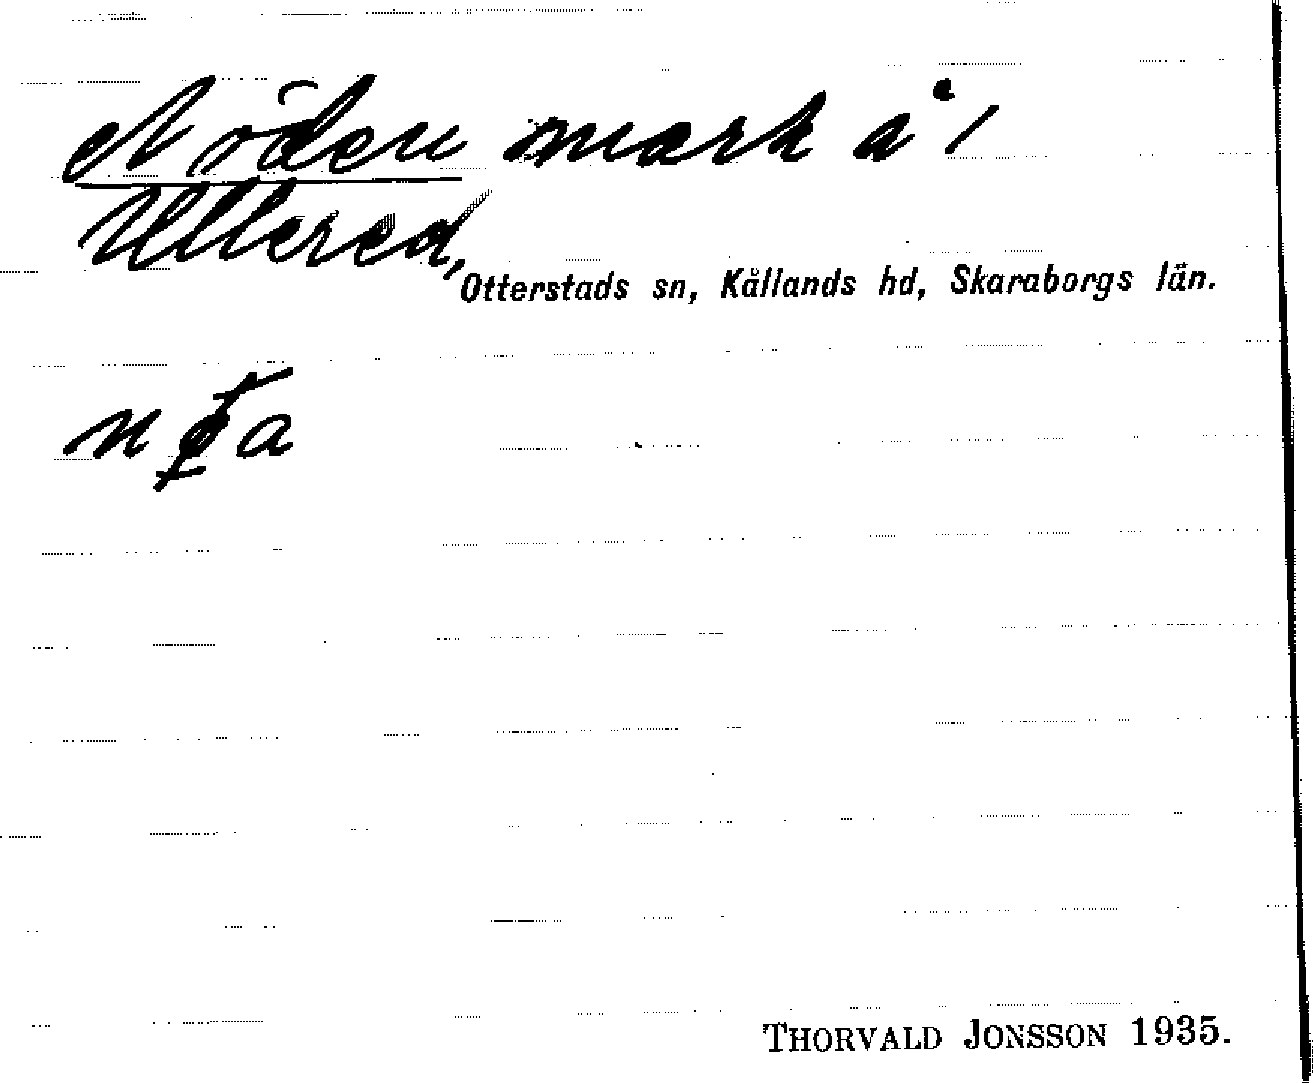 Nöden mark å /
Ullered,
Otterstads sn, Kållands hd, Skaraborgs län.
THORVALD JONSSON 1935.